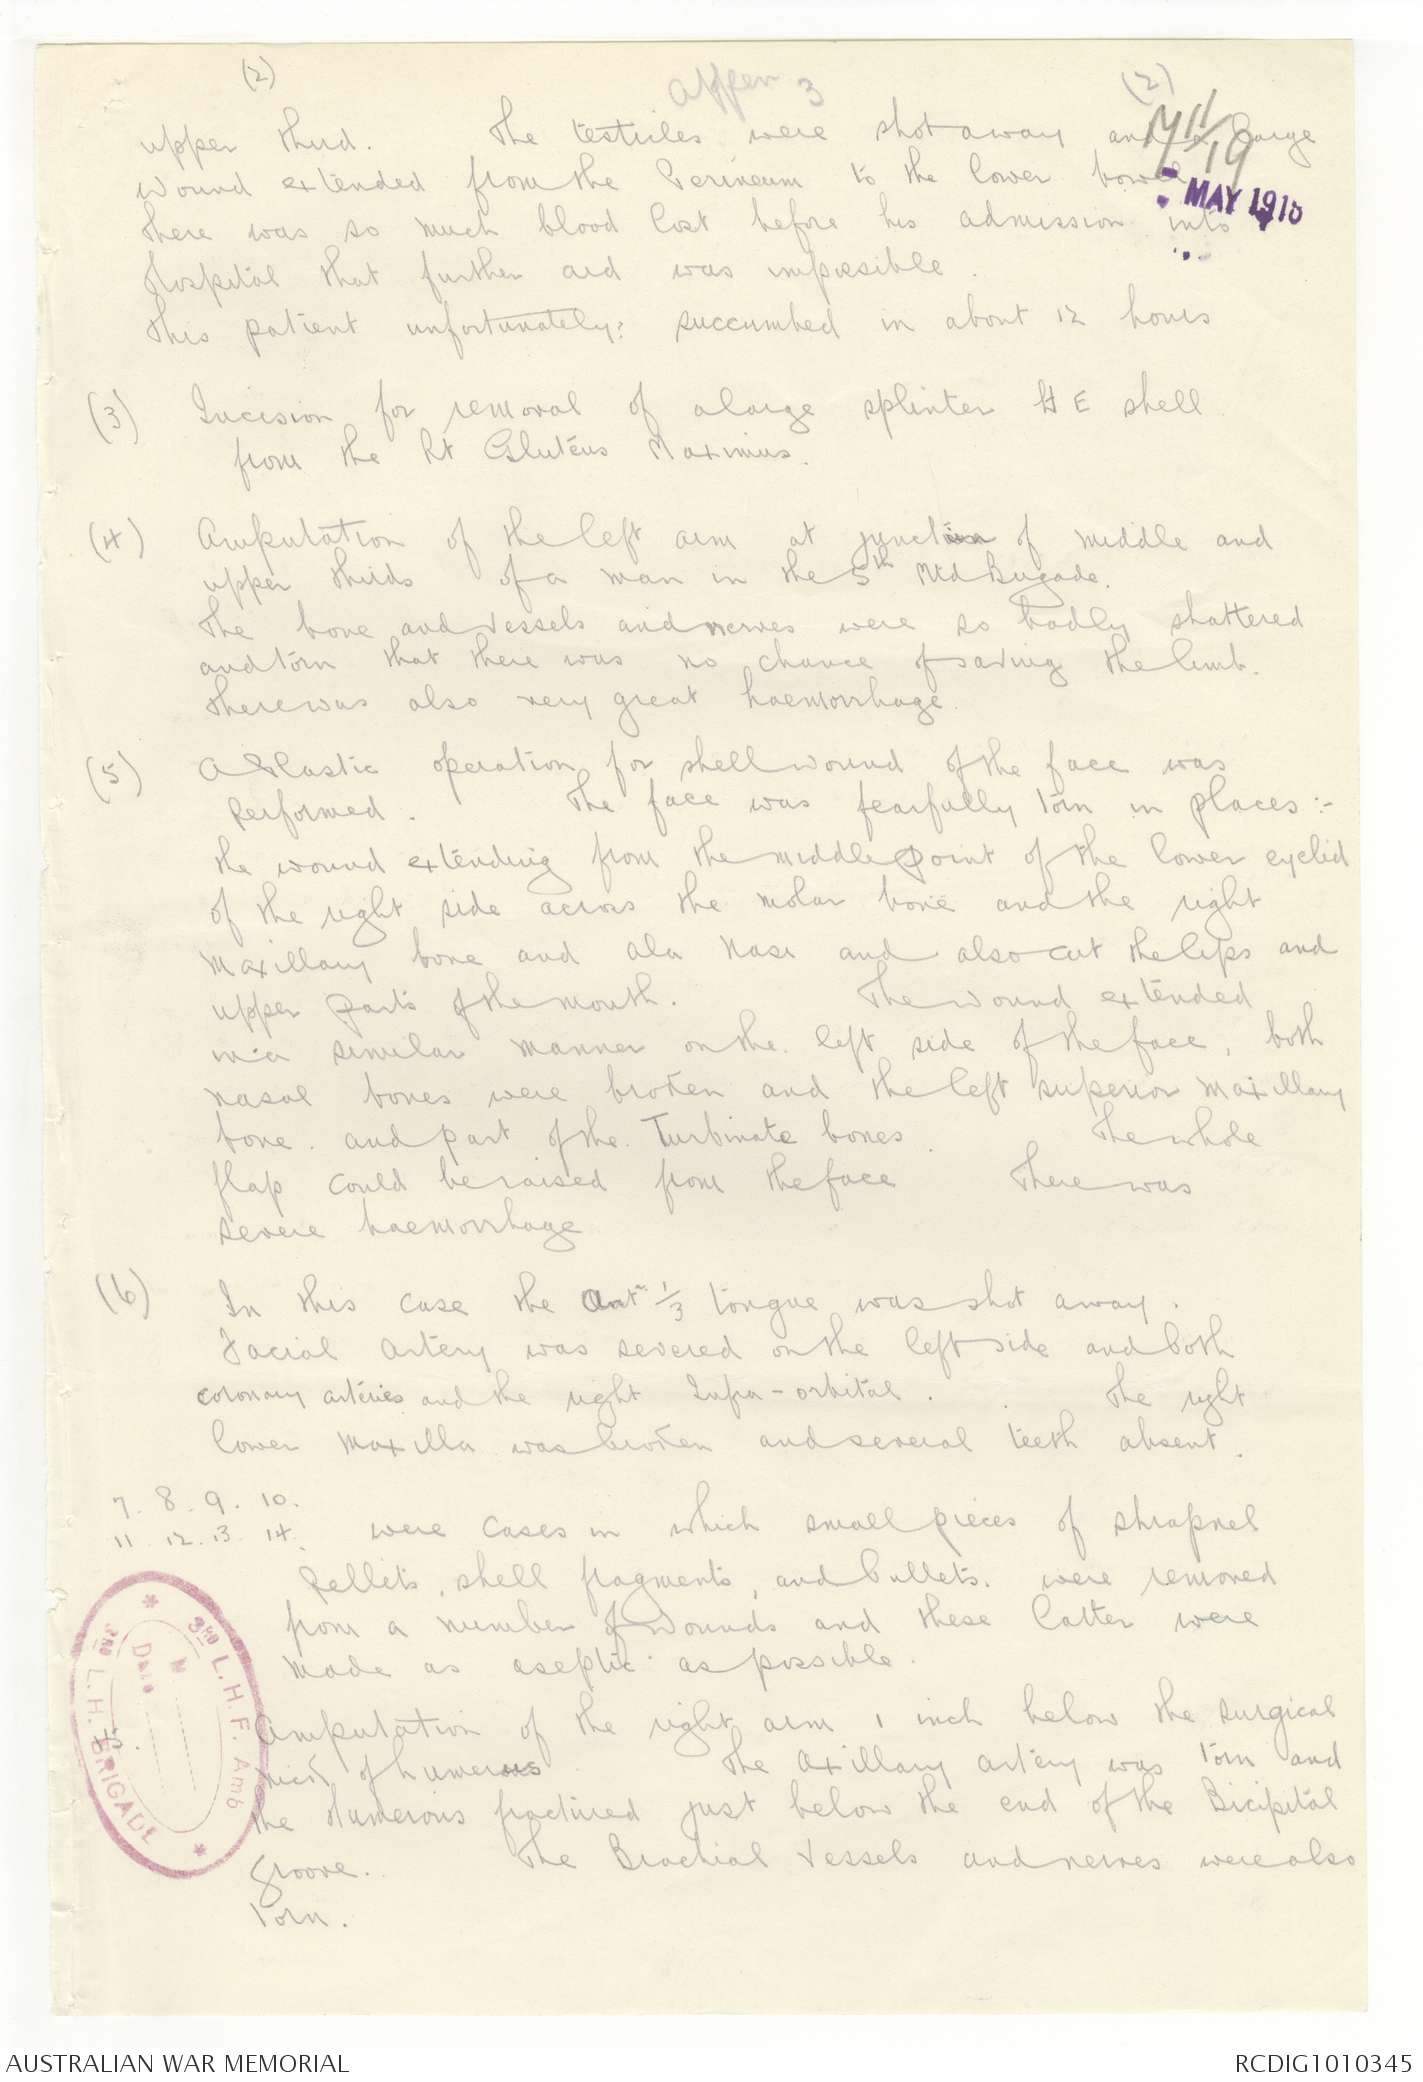 (2)
Appen 3
(2)
M 11/19
MAY 1918
upper third. The testicles were shot away and a large
wound extended from the Perineum to the lower bowel
There was so much blood lost before his admission into
Hospital that further aid was impossible.
This patient unfortunately: succumbed in about 12 hours
(3) Incision for removal of a large splinter H E shell
from the Rt Gluteus Maximus.
(4) Amputation of the left arm at junction of middle and
upper thirds of a man in the 5th Mtd Brigade.
The bone and vessels and nerves were so badly shattered
and torn that there was no chance of saving the limb.
There was also very great haemorrhage.
(5) A Plastic operation for shell wound of the face was
performed. The face was fearfully torn in places:-
the wound extending from the middle point of the lower eyelid
of the right side across the molar bone and the right
Maxillary bone and ala nasi and also cut the lips and
upper parts of the mouth. The wound extended
in a similar manner on the left side of the face, both
nasal bones were broken and the left superior maxillary
bone. and part of the. Turbinate bones. The whole
flap could be raised from the face There was
severe haemorrhage
(6) In this case the Ant 1/3 tongue was shot away.
Facial artery was severed on the left side and both
coronary arteries and the right Infra-orbital. The right
lower Maxilla was broken and several teeth absent.
7. 8. 9. 10.
11 12. 13. 14. were cases in which small pieces of shrapnel
Pellets, shell fragments, and bullets. were removed
from a number of wounds and these latter were
made as aseptic as possible.
Amputation of the right arm 1 inch below the surgical
neck of humerus The axillary artery was torn and
the Humerous fractured just below the end of the Bicipital
groove. The Brachial vessels and nerves were also
torn.
3RD L.H.F. Amb
L.H. BRIGADE
Date
AUSTRALIAN WAR MEMORIAL
RCDIG1010345